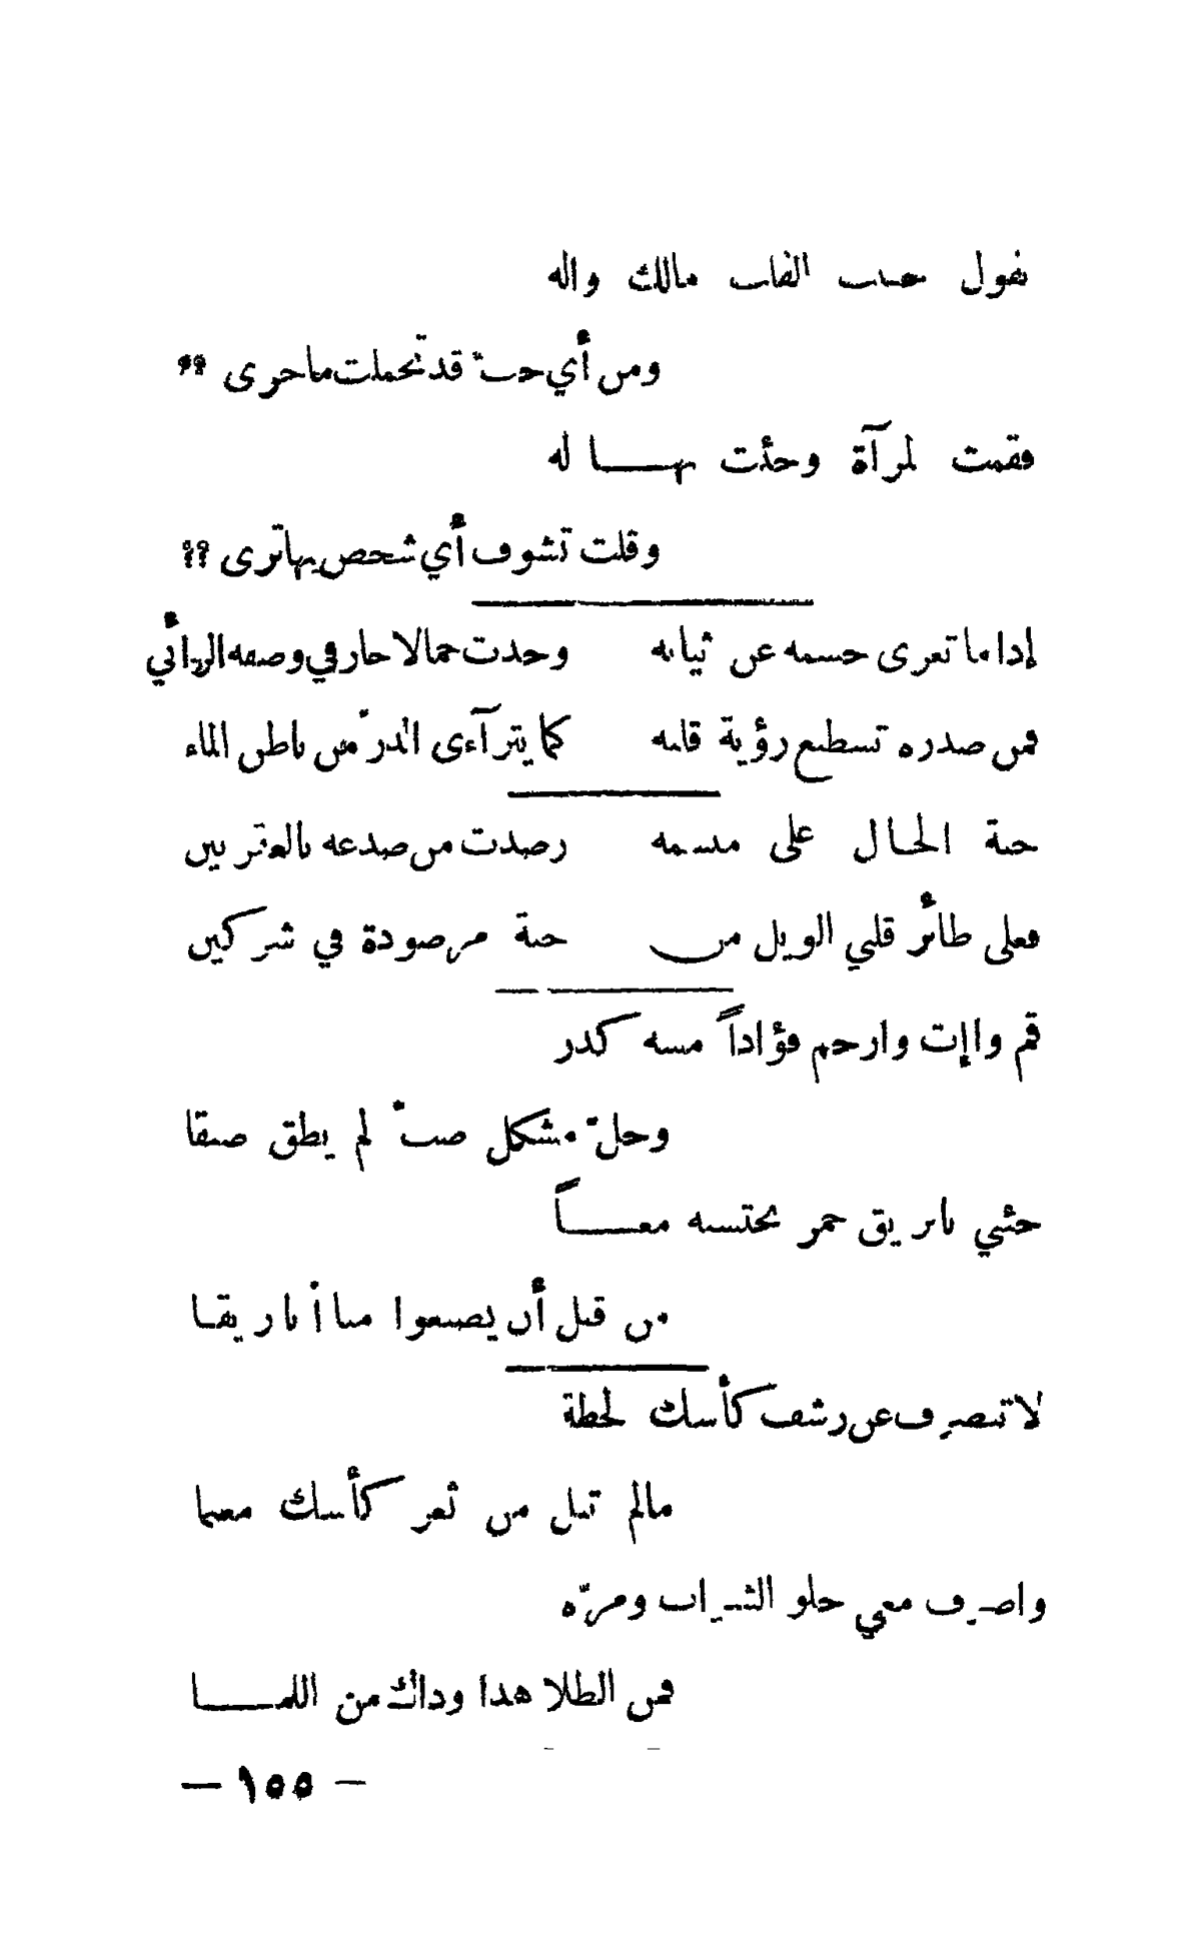 يقول حبيب القلب مالك واله
ومن أي حبّ قد تحملت ما جرى ؟؟
فقمت لمرآة وجئت بهـــا له
وقلت تشوف أي شخص بها ترى ؟؟
إذا ما تعرى جسمه عن ثيابه وجدت جمالا حار في وصفه الرائي
فمن صدره تسطيع رؤية قلبه كما يترآءى الدرّ من باطن الماء
حبة الخال على مبسمه رصدت من صدغه بالعقربين
فعلى طائر قلبي الويل من حبة مرصودة في شركين
قم واإت وارحم فؤاداً مسه كدر
وحلّ مشكل صبّ لم يطق ضيقا
جئني بابريق خمر نحتسيه معـــاً
من قبل أن يصنعوا منا أباريقا
لا تنصرف عن رشف كأسك لحظة
مالم تنل من ثغر كأسك مغنما
واصرف معي حلو الشراب ومرّه
فمن الطلا هذا وذاك من اللمـــا
— ١٥٥ —